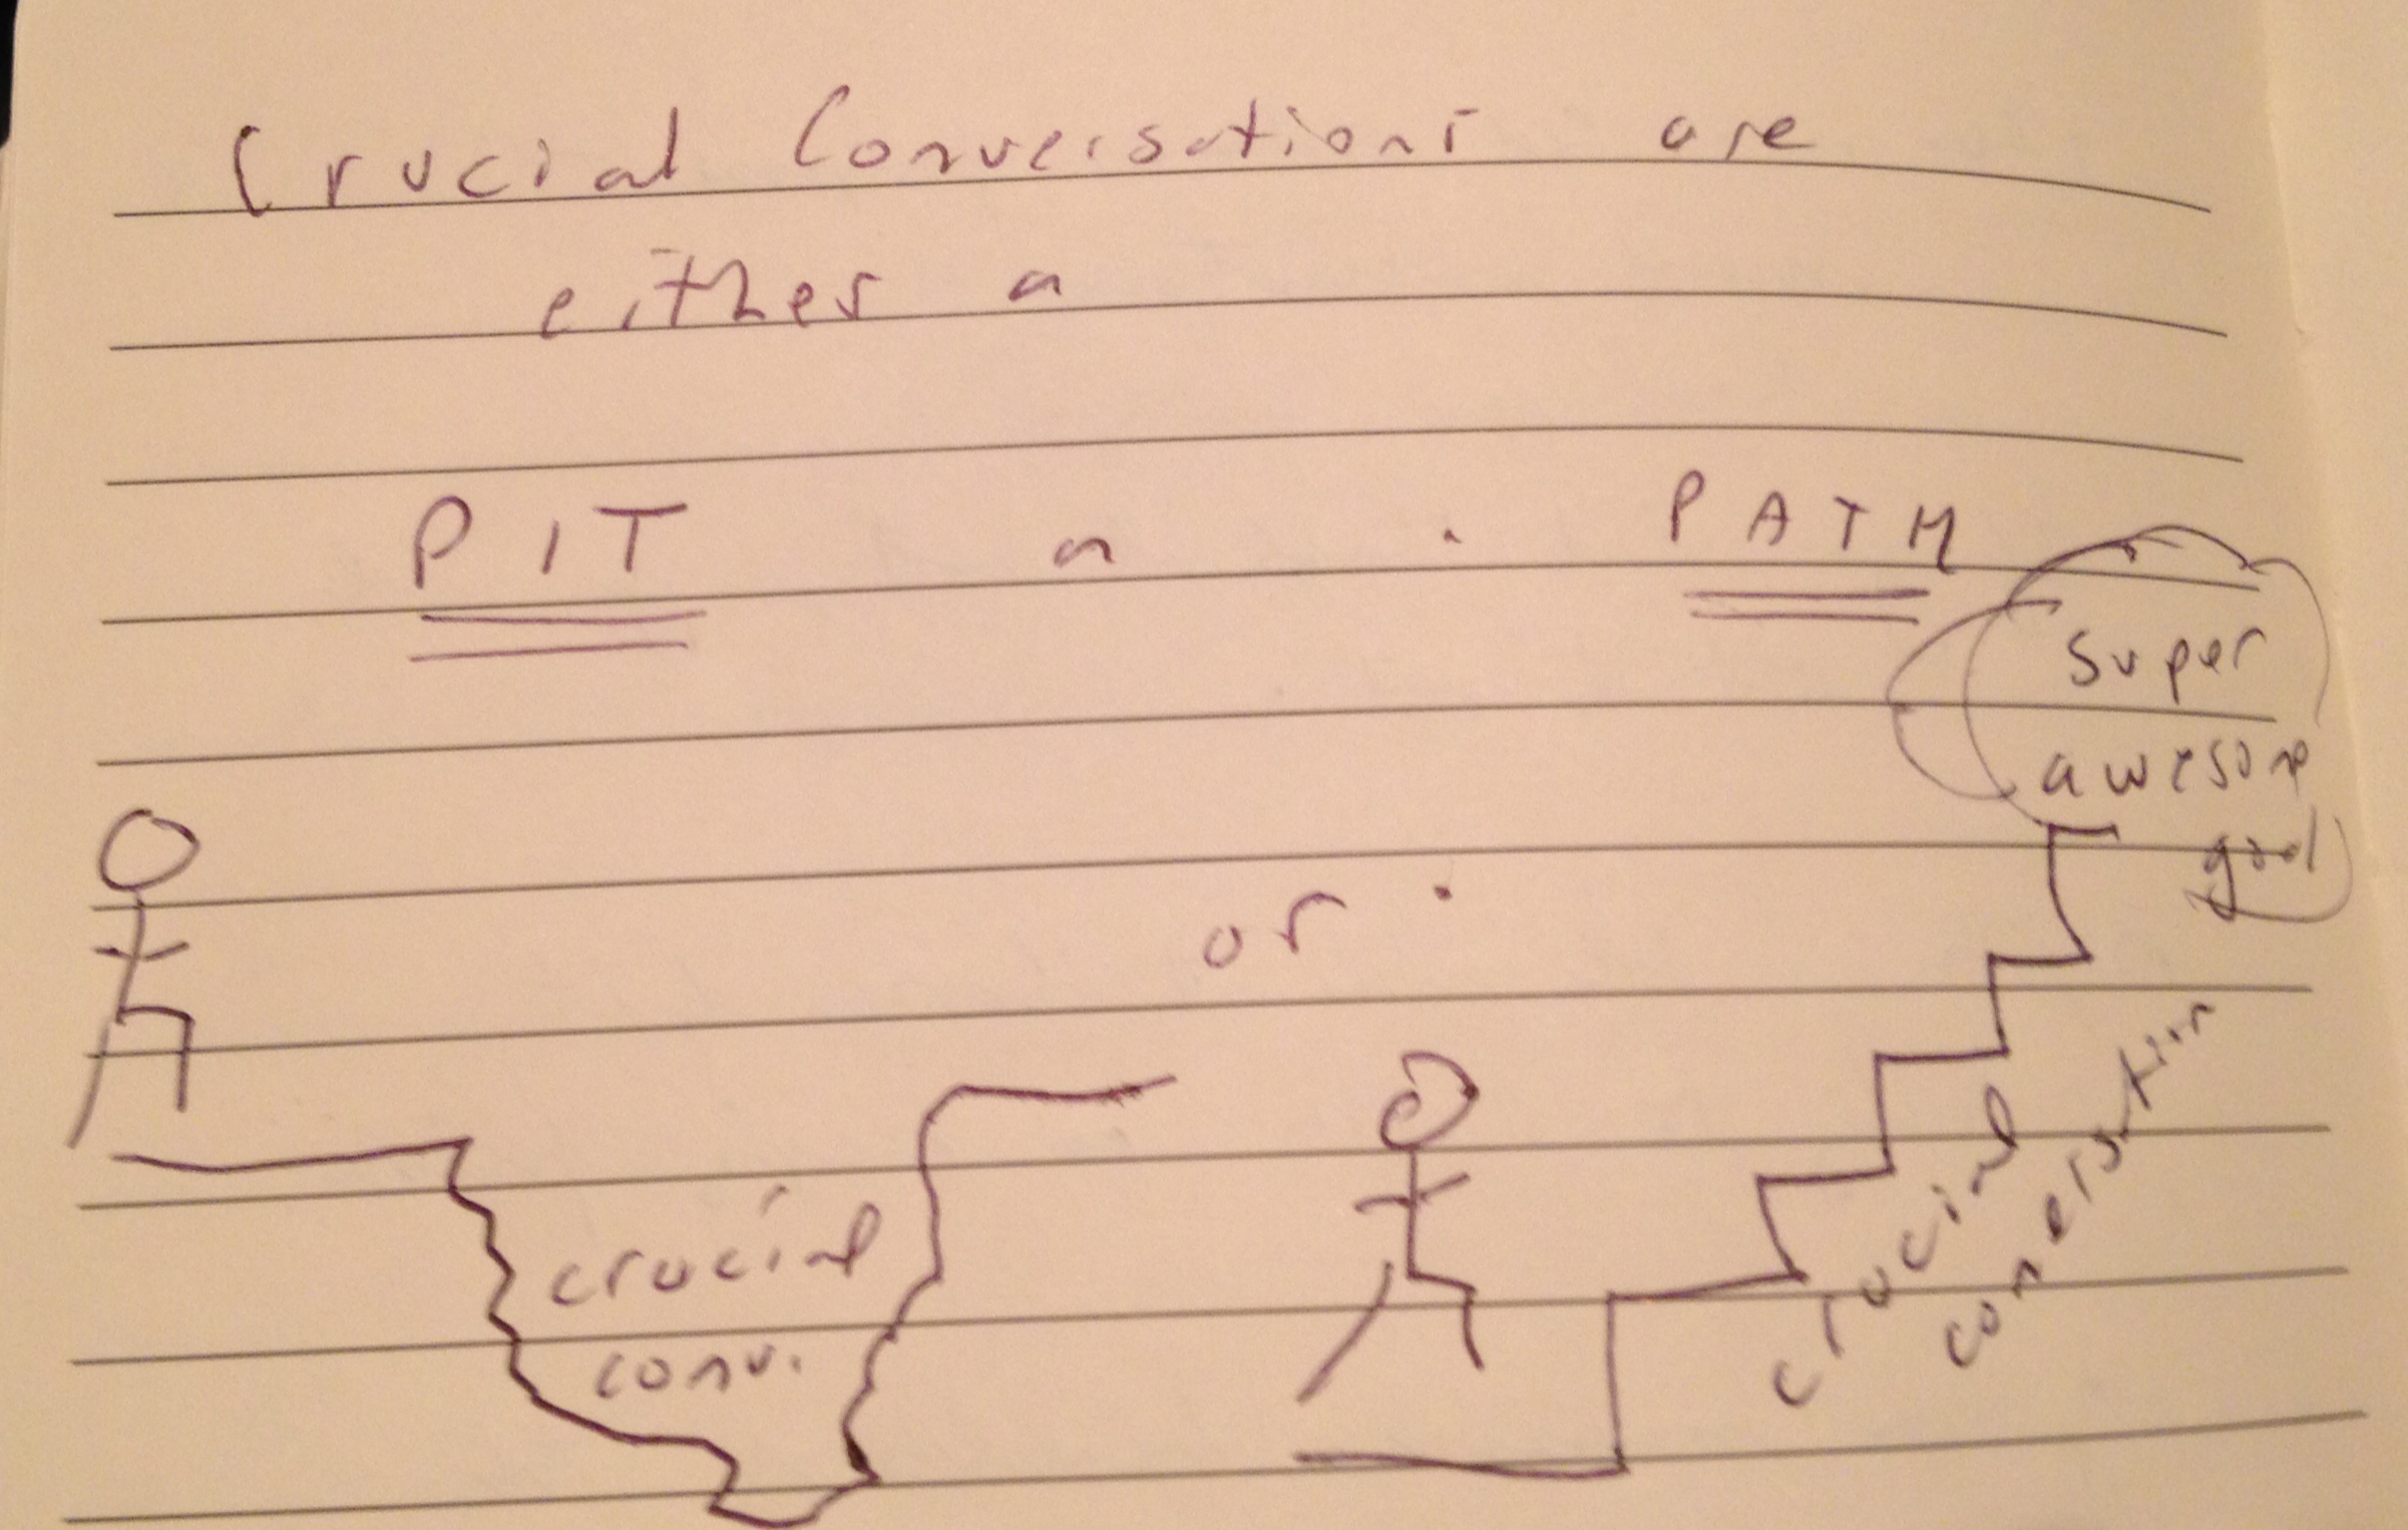 Crucial Conversations are
either a
PIT a PATH
or
super
awesome
goal
crucial
conv.
crucial
conversation